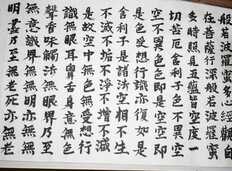 般若波羅蜜多心經觀自
在菩薩行深般若波羅蜜
多時照見五蘊皆空度一
切苦厄舍利子色不異空
空不異色色即是空空即
是色受想行識亦復如是
舍利子是諸法空相不生
不滅不垢不淨不增不減
是故空中無色無受想行
識無眼耳鼻舌身意無色
聲香味觸法無眼界乃至
無意識界無無明亦無無
明盡乃至無老死亦無老